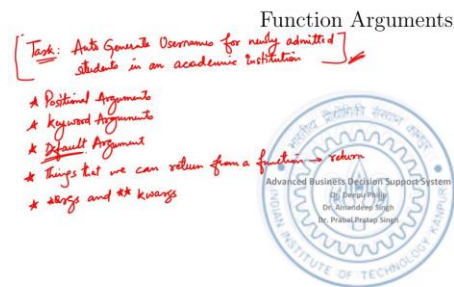 Function Arguments
[Task: Auto Generate Usernames for newly admitted
students in an academic institution]
* Positional Arguments
* Keyword Arguments
* Default Argument
* Things that we can return from a function → return
* *args and ** kwargs
Advanced Business Decision Support System
Dr. Deepu Philip
Dr. Amandeep Singh
Dr. Prabal Pratap Singh
भारतीय प्रौद्योगिकी संस्थान कानपुर
INDIAN INSTITUTE OF TECHNOLOGY KANPUR